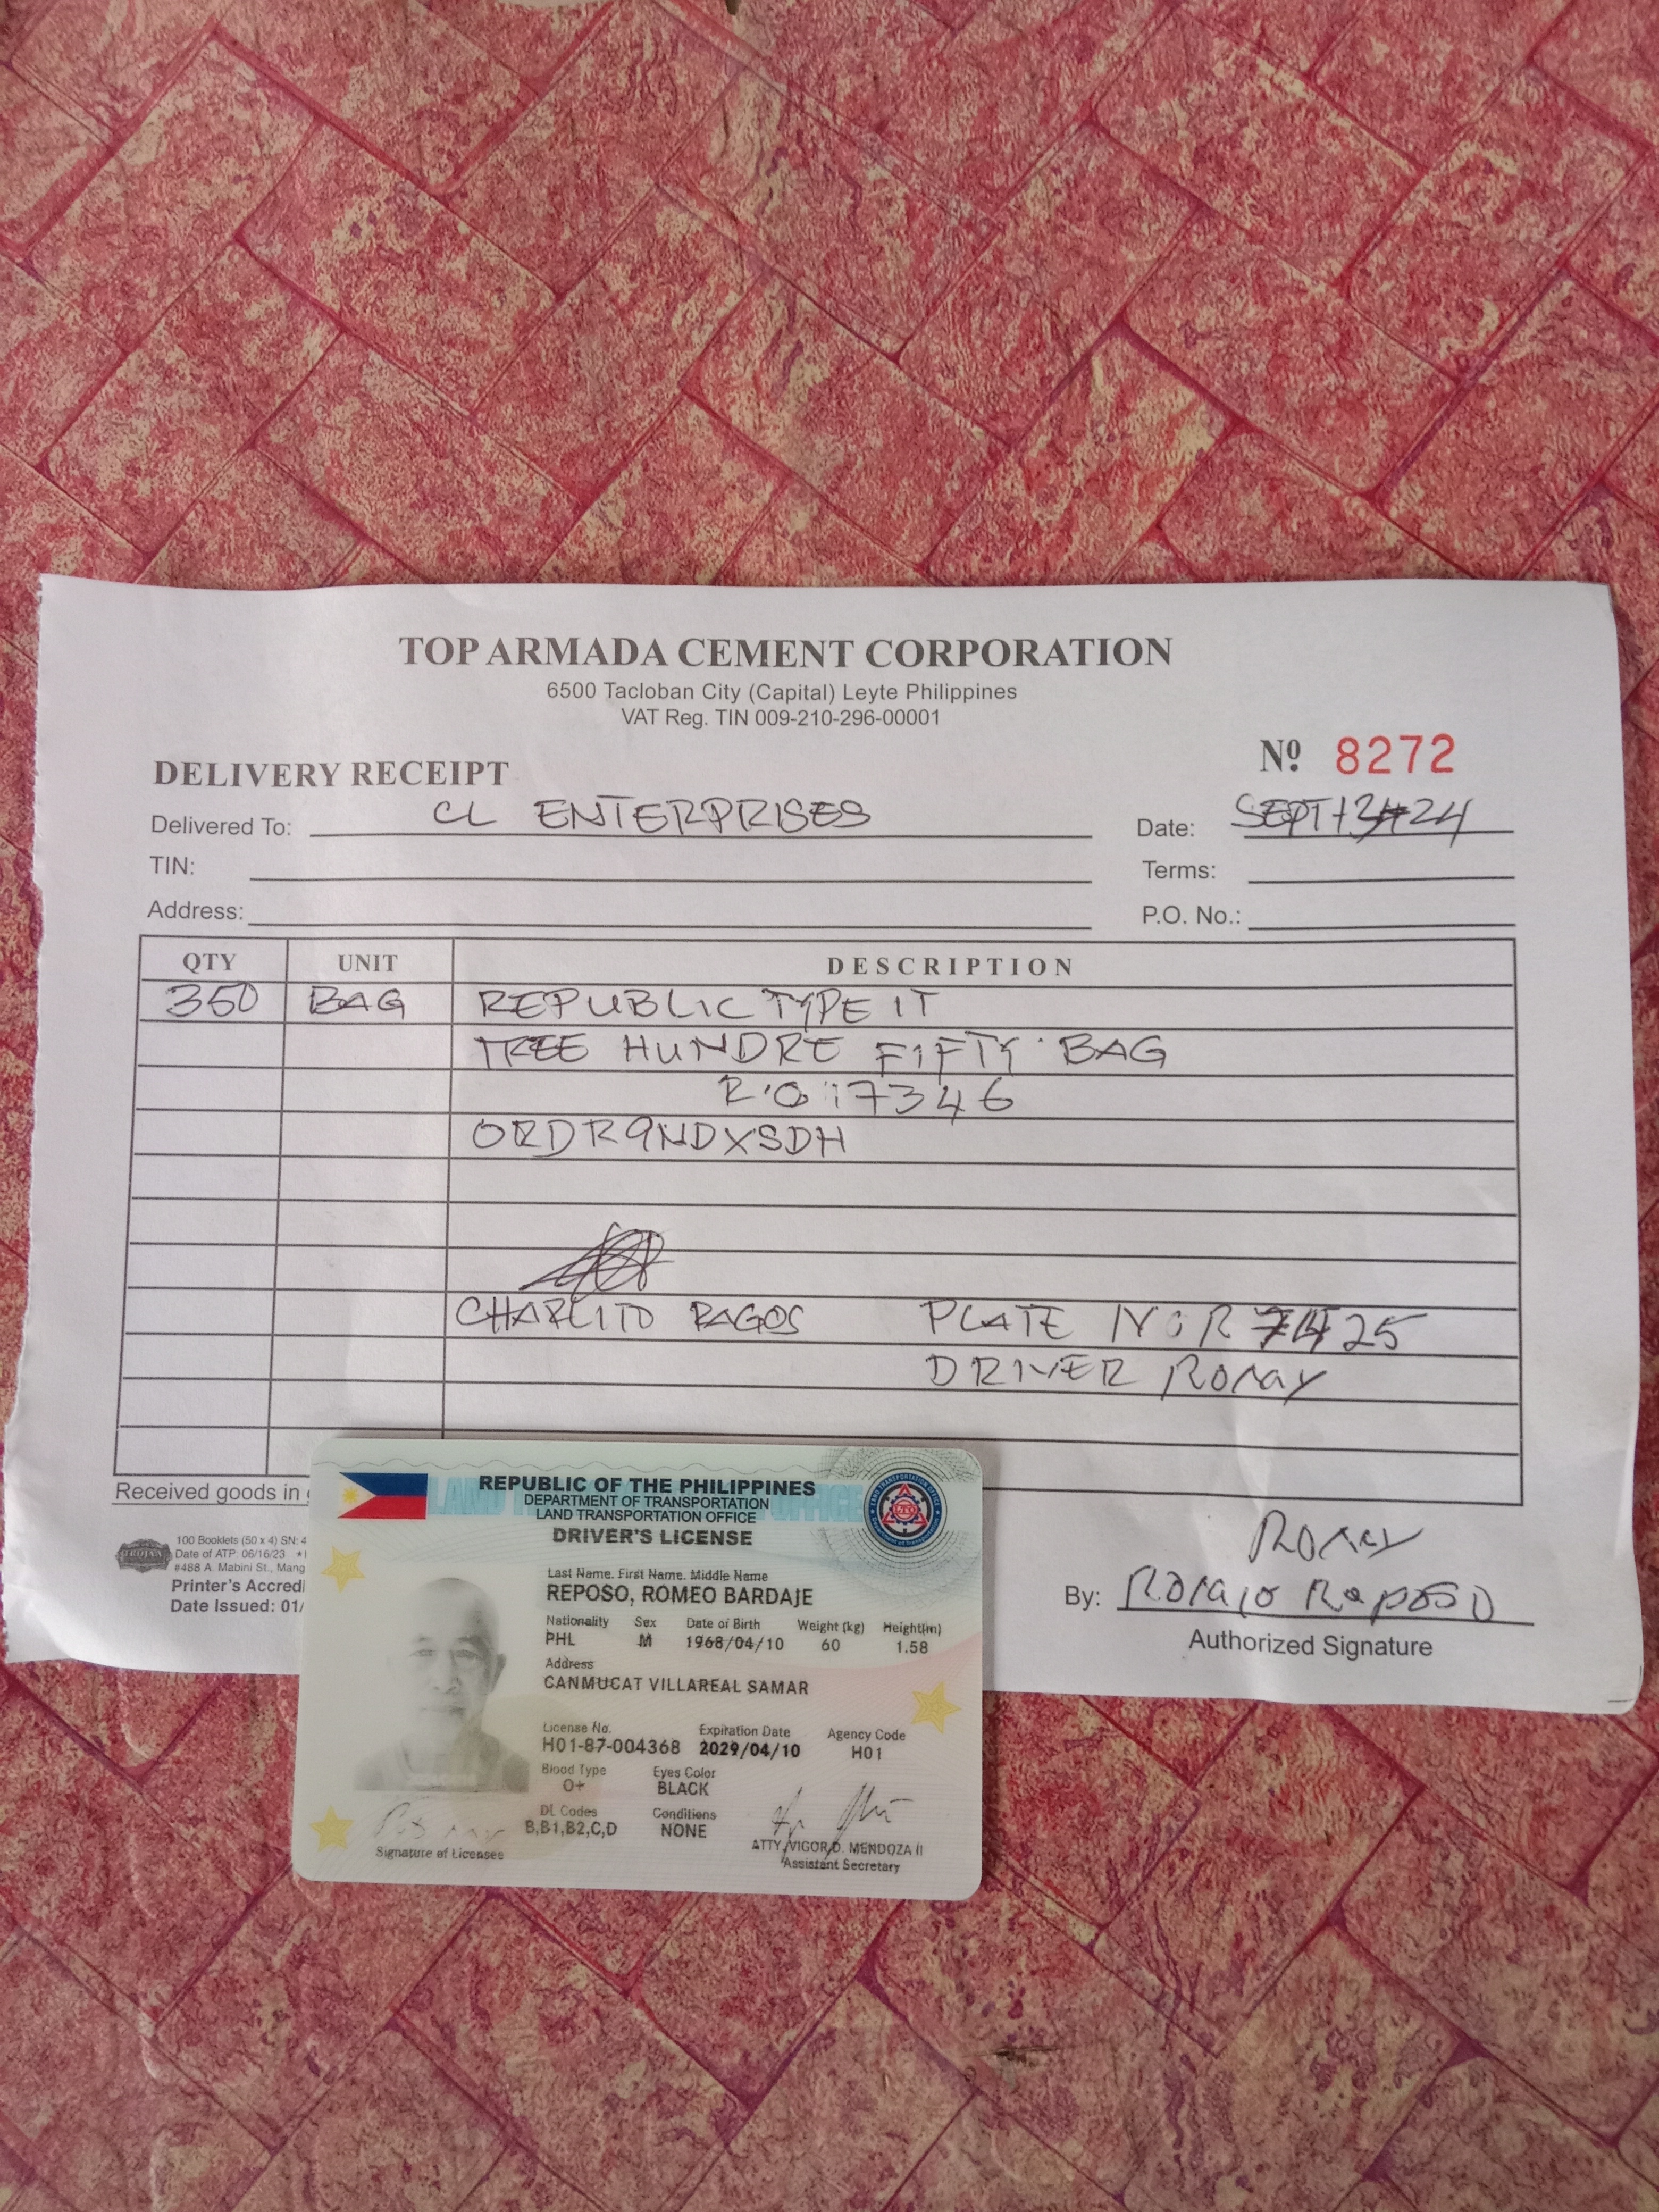 TOP ARMADA CEMENT CORPORATION
6500 Tacloban City (Capital) Leyte Philippines
VAT Reg. TIN 009-210-296-00001
Nº 8272
DELIVERY RECEIPT
Delivered To: CL ENTERPRISES
Date: SEPT 13 24
TIN:
Terms:
Address:
P.O. No.:
QTY UNIT DESCRIPTION
350 BAG REPUBLIC TYPE 1T
TREE HUNDRE FIFTY BAG
R.O 17346
ORDR9NDXSDH
CHARLITO RAGOS PLATE NO R 7425
DRIVER Romy
Received goods in
100 Booklets (50 x 4) SN: 4
Date of ATP: 06/16/23
#488 A. Mabini St., Mang
Printer's Accredi
Date Issued: 01/
TROJAN
Romy
By: Romeo Reposo
Authorized Signature
REPUBLIC OF THE PHILIPPINES
DEPARTMENT OF TRANSPORTATION
LAND TRANSPORTATION OFFICE
DRIVER'S LICENSE
Last Name. First Name. Middle Name
REPOSO, ROMEO BARDAJE
Nationality Sex Date of Birth Weight (kg) Height(m)
PHL M 1968/04/10 60 1.58
Address
CANMUCAT VILLAREAL SAMAR
License No. Expiration Date Agency Code
H01-87-004368 2029/04/10 H01
Blood Type Eyes Color
O+ BLACK
DL Codes Conditions
B,B1,B2,C,D NONE
ATTY. VIGOR D. MENDOZA II
Signature of Licensee Assistant Secretary